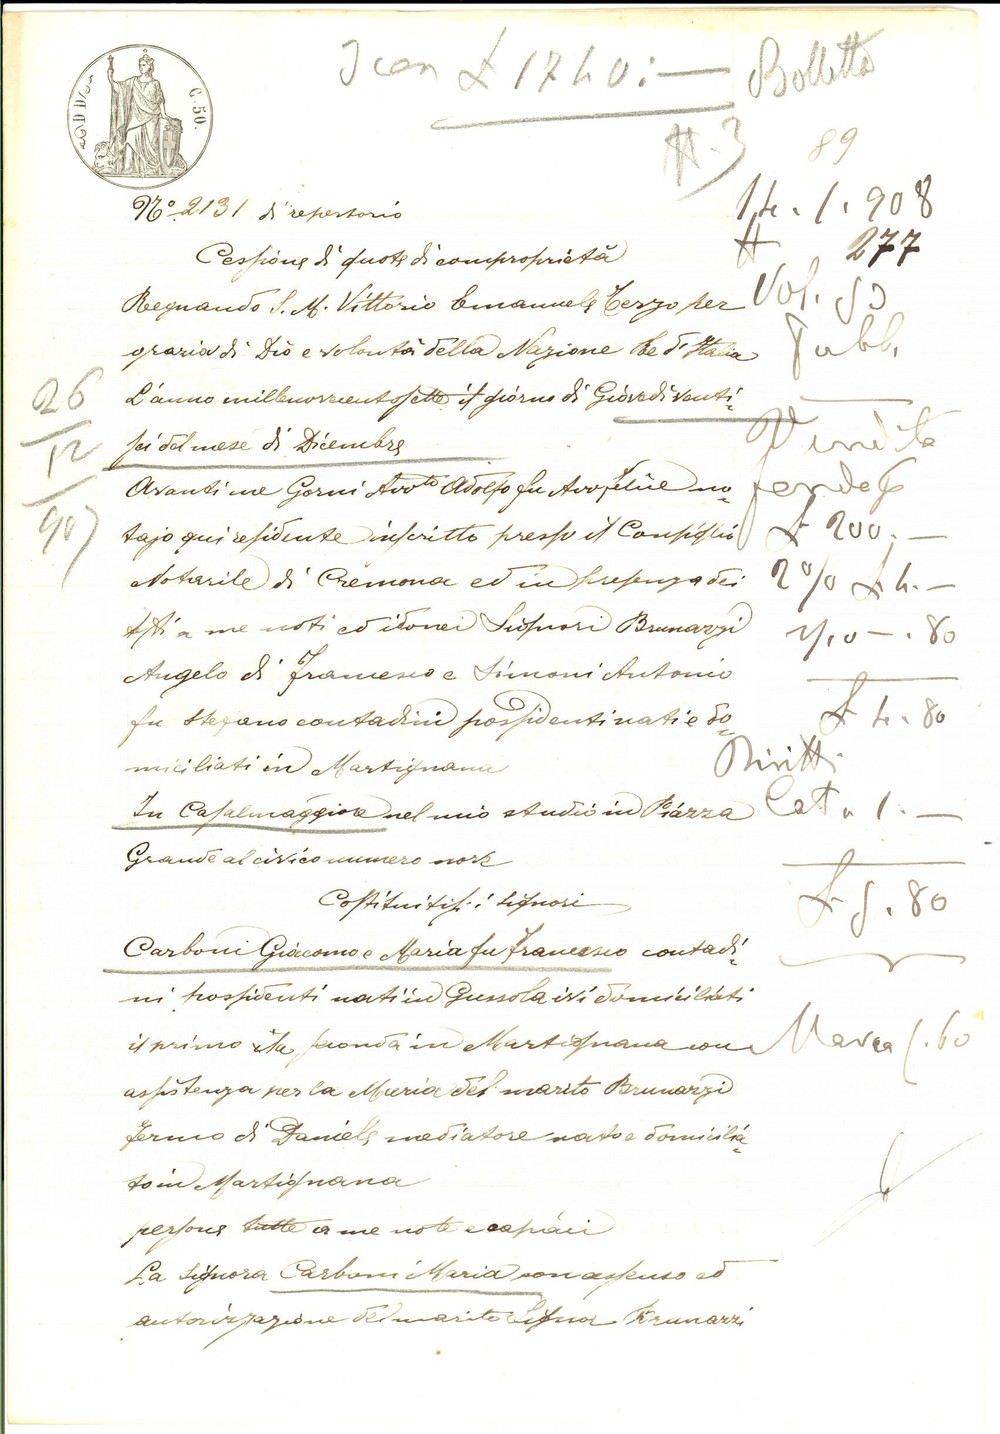 £ 1740:—
Bolletta
# 3
89
C. 50.
N.° 2131 di repertorio
14. 1. 908
# 277
Cessione di quota di comproprietà
Regnando S. M. Vittorio Emanuele Terzo per
Vol. 50
grazia di Dio e volontà della Nazione Re d'Italia
Pubb.
L'anno millenovecentosette il giorno di Giovedì venti-
sei del mese di Dicembre
26
12
907
Vendita
Avanti me Gorni Avv.to Adolfo fu Avv. Felice no-
tajo qui residente inscritto presso il Consiglio
£ 200.—
Notarile di Cremona ed in presenza dei
2% £ 4.—
testi a me noti ed idonei Signori Brunazzi
—.80
Angelo di Francesco e Simoni Antonio
fu Stefano contadini possidenti nati e do-
£ 4.80
miciliati in Martignana
Diritti
In Casalmaggiore nel mio studio in Piazza
Cat. 1.—
Grande al civico numero nove
Costituitisi i signori
£ 5.80
Carboni Giacomo e Maria fu Francesco contadi-
ni possidenti nati in Gussola ivi domiciliati
il primo e la seconda in Martignana con
Marca 1.60
assistenza per la Maria del marito Brunazzi
Fermo di Daniele mediatore nato e domicilia-
to in Martignana
persone tutte a me note e capaci
La signora Carboni Maria con assenso ed
autorizzazione del marito Signor Brunazzi